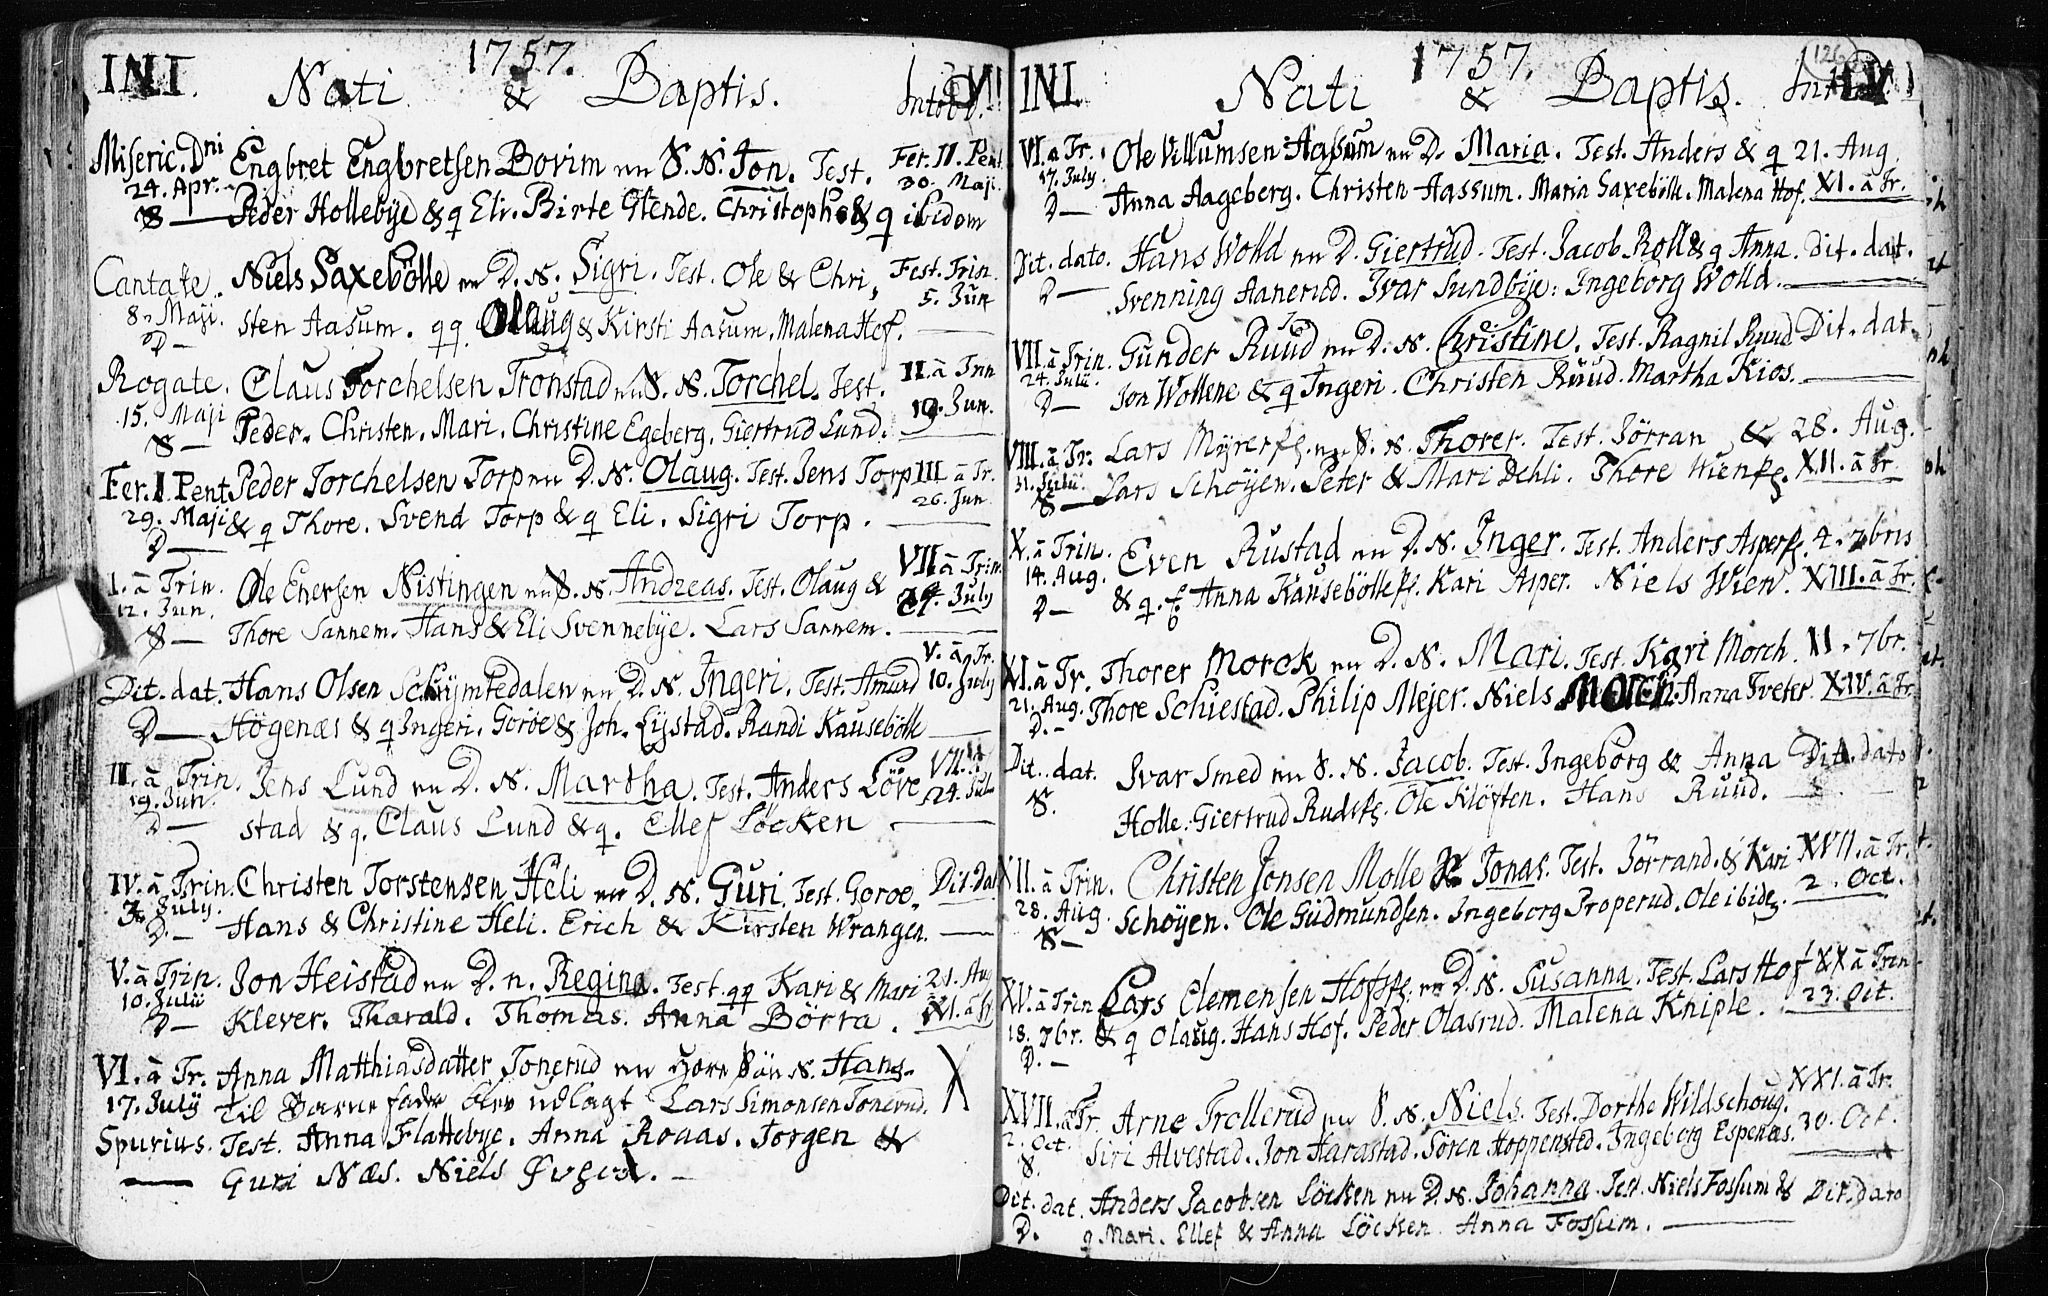 1757.
INI. Nati & Baptis. Introd.
Miseric. Dni Engbret Engbretsen Bovim S. N. Jon. Test. Fer. II. Pent.
24. Apr. Peder Hollebye & q Eli. Birte Stende. Christoph & q ibidem 30. Maji.
S —
Cantate. Niels Saxebölle D. N. Sigri. Test. Ole & Chri, Fest. Trin.
8. Maji. sten Aasum. qq. Olaug & Kirsti Aasum, Malena Hof. 5. Jun
D —
Rogate. Claus Torchelsen Tronstad S. N. Torchel. Test. II. à Trin
15. Maji Peder. Christen. Mari. Christine Egeberg. Giertrud Lund. 19. Jun.
S —
Fer. I. Pent. Peder Torchelsen Torp D. N. Olaug. Test. Jens Torp III à Tr.
29. Maji & q Thore. Svend Torp & q Eli. Sigri Torp. 26. Jun
D —
I. à Trin. Ole Enersen Nistingen S. N. Andreas. Test. Olaug & VII à Trin.
12. Jun. Thore Sannem. Hans & Eli Svennebye. Lars Sannem. 24. July
S —
Dit. dat. Hans Olsen D. N. Ingeri. Test. Amund V. à Tr.
D — Högenæs & q Ingeri. Goröe & Joh. Lystad. Randi Kausebölle 10. July
III. à Trin. Jens Lund D. N. Martha. Test. Anders Löve VII.
19. Jun. stad & q. Claus Lund & q. Ellef Löcken 24. Jul
D —
IV. à Trin. Christen Torstensen Heli D. N. Guri. Test. Goroe, Dit. Dat
3. July. Hans & Christine Heli. Erich & Kirsten Wrangen.
D. —
V. à Trin. Jon Heistad D. n. Regina. Test. qq Kari & Mari 21. Aug
10. Julii Klever. Tharald. Thomas. Anna Börra. XI. à Tr
D —
VI. à Tr. Anna Matthiasdatter Tonerud Hore Sön N. Hans. X
17. July Til Barne fader blev udlagt Lars Simonsen Tonerud.
Spurius. Test. Anna Flattebye. Anna Roaas. Jorgen &
— Guri Næs. Niels —
1757. 126
INI. Nati & Baptis.
VI. à Tr. Ole Villumsen Aasum D. Maria. Test. Anders & q 21. Aug.
17. July. Anna Aageberg. Christen Aassum. Maria Saxebölle. Malena Hof. XI. à Tr.
D —
Dit. dato. Hans Wolld D. Giertrud. Test. Jacob Roll & q Anna. Dit. dat.
D — Svenning Aanerud. Ivar Sundbye: Ingeborg Wolld.
VII. à Trin. Gunder Ruud D. N. Christine. Test. Ragnil Ruud Dit. dat
24. Julii. Jon Wollene & q Ingeri. Christen Ruud. Martha Kios.
D —
VIII. à Tr. Lars S. N. Thorer. Test. Jörran & 28. Aug.
31. Julii Lars Schöyen. Peter & Mari Dehli. Thore XII. à Tr.
S —
X. à Trin. Even Rustad D. N. Inger. Test. Anders 4. 7bris
14. Aug. & q. Anna Kari Asper. Niels Wien. XIII. à Tr.
D —
XI. à Tr. Thorer Morck D. N. Mari. Test. Kari Morch. 11. 7br.
21. Aug. Thore Schiestad. Philip Mejer. Niels Morch. Anna Tveter. XIV. à Tr
D. —
Dit. dat. Ivar Smed S. N. Jacob. Test. Ingeborg & Anna Dit. dato
S. Holle. Giertrud Ole Klöften. Hans Ruud.
XII. à Trin. Christen Jonsen Molle Jonas. Test. Jörrand. & Kari XVII. à Tr.
28. Aug. Schöyen. Ole Gudmundsen. Ingeborg Properud. Ole 2. Oct.
S —
XV. à Trin Lars Clemensen D. N. Susanna. Test. Lars Hof XX à Trin
18. 7br. & q Olaug. Hans Hof. Peder Olasrud. Malena Kniple. 23. Oct.
D. —
XVII. à Tr. Arne Trollerud S. N. Niels. Test. Dorthe Wildschoug. XXI. à Tr.
2. Oct. Siri Alvestad. Jon Harastad. Sören Hoppensted. Ingeborg Espenæs. 30. Oct.
S.
Dit. dat. Anders Jacobsen Löcken D. N. Johanna. Test. Niels Fossum & Dit. dato
D. q Mari. Ellef & Anna Löcken. Anna Fossum. —